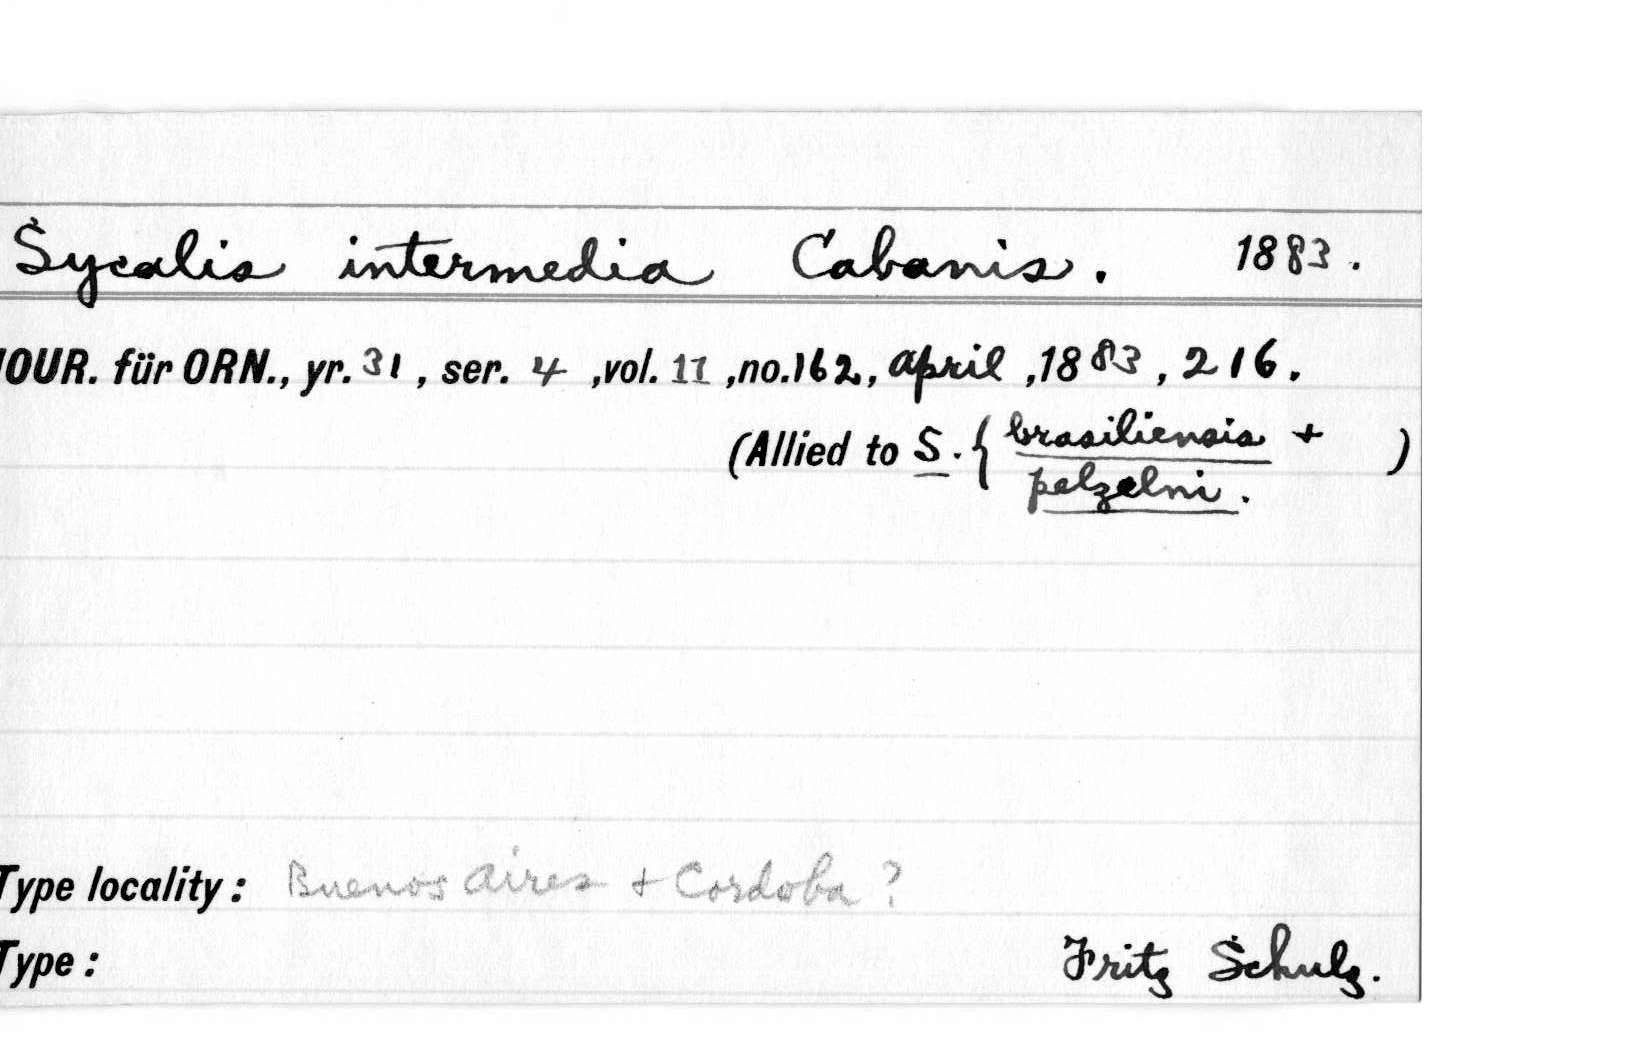 Sycalis intermedia Cabanis. 1883.
JOUR. für ORN., yr. 31, ser. 4, vol. 11, no. 162, April, 1883, 216.
(Allied to S. { brasiliensis + )
pelzelni.
Type locality: Buenos Aires + Cordoba?
Type: Fritz Schulz.